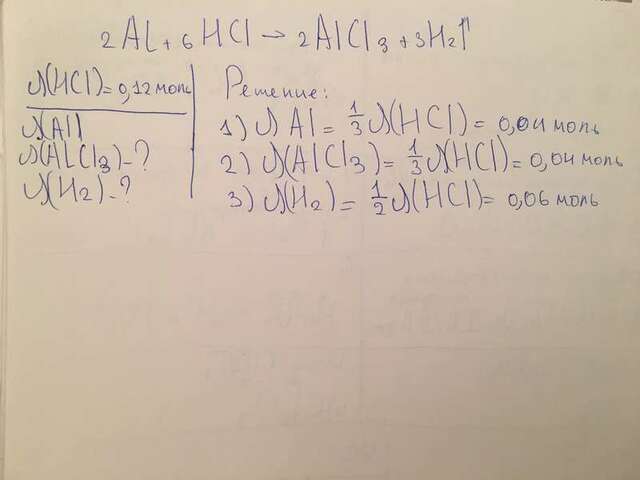 2Al + 6HCl → 2AlCl3 + 3H2↑
ν(HCl) = 0,12 моль
ν(Al)
ν(AlCl3) - ?
ν(H2) - ?
Решение:
1) ν Al = 1/3 ν(HCl) = 0,04 моль
2) ν(AlCl3) = 1/3 ν(HCl) = 0,04 моль
3) ν(H2) = 1/2 ν(HCl) = 0,06 моль